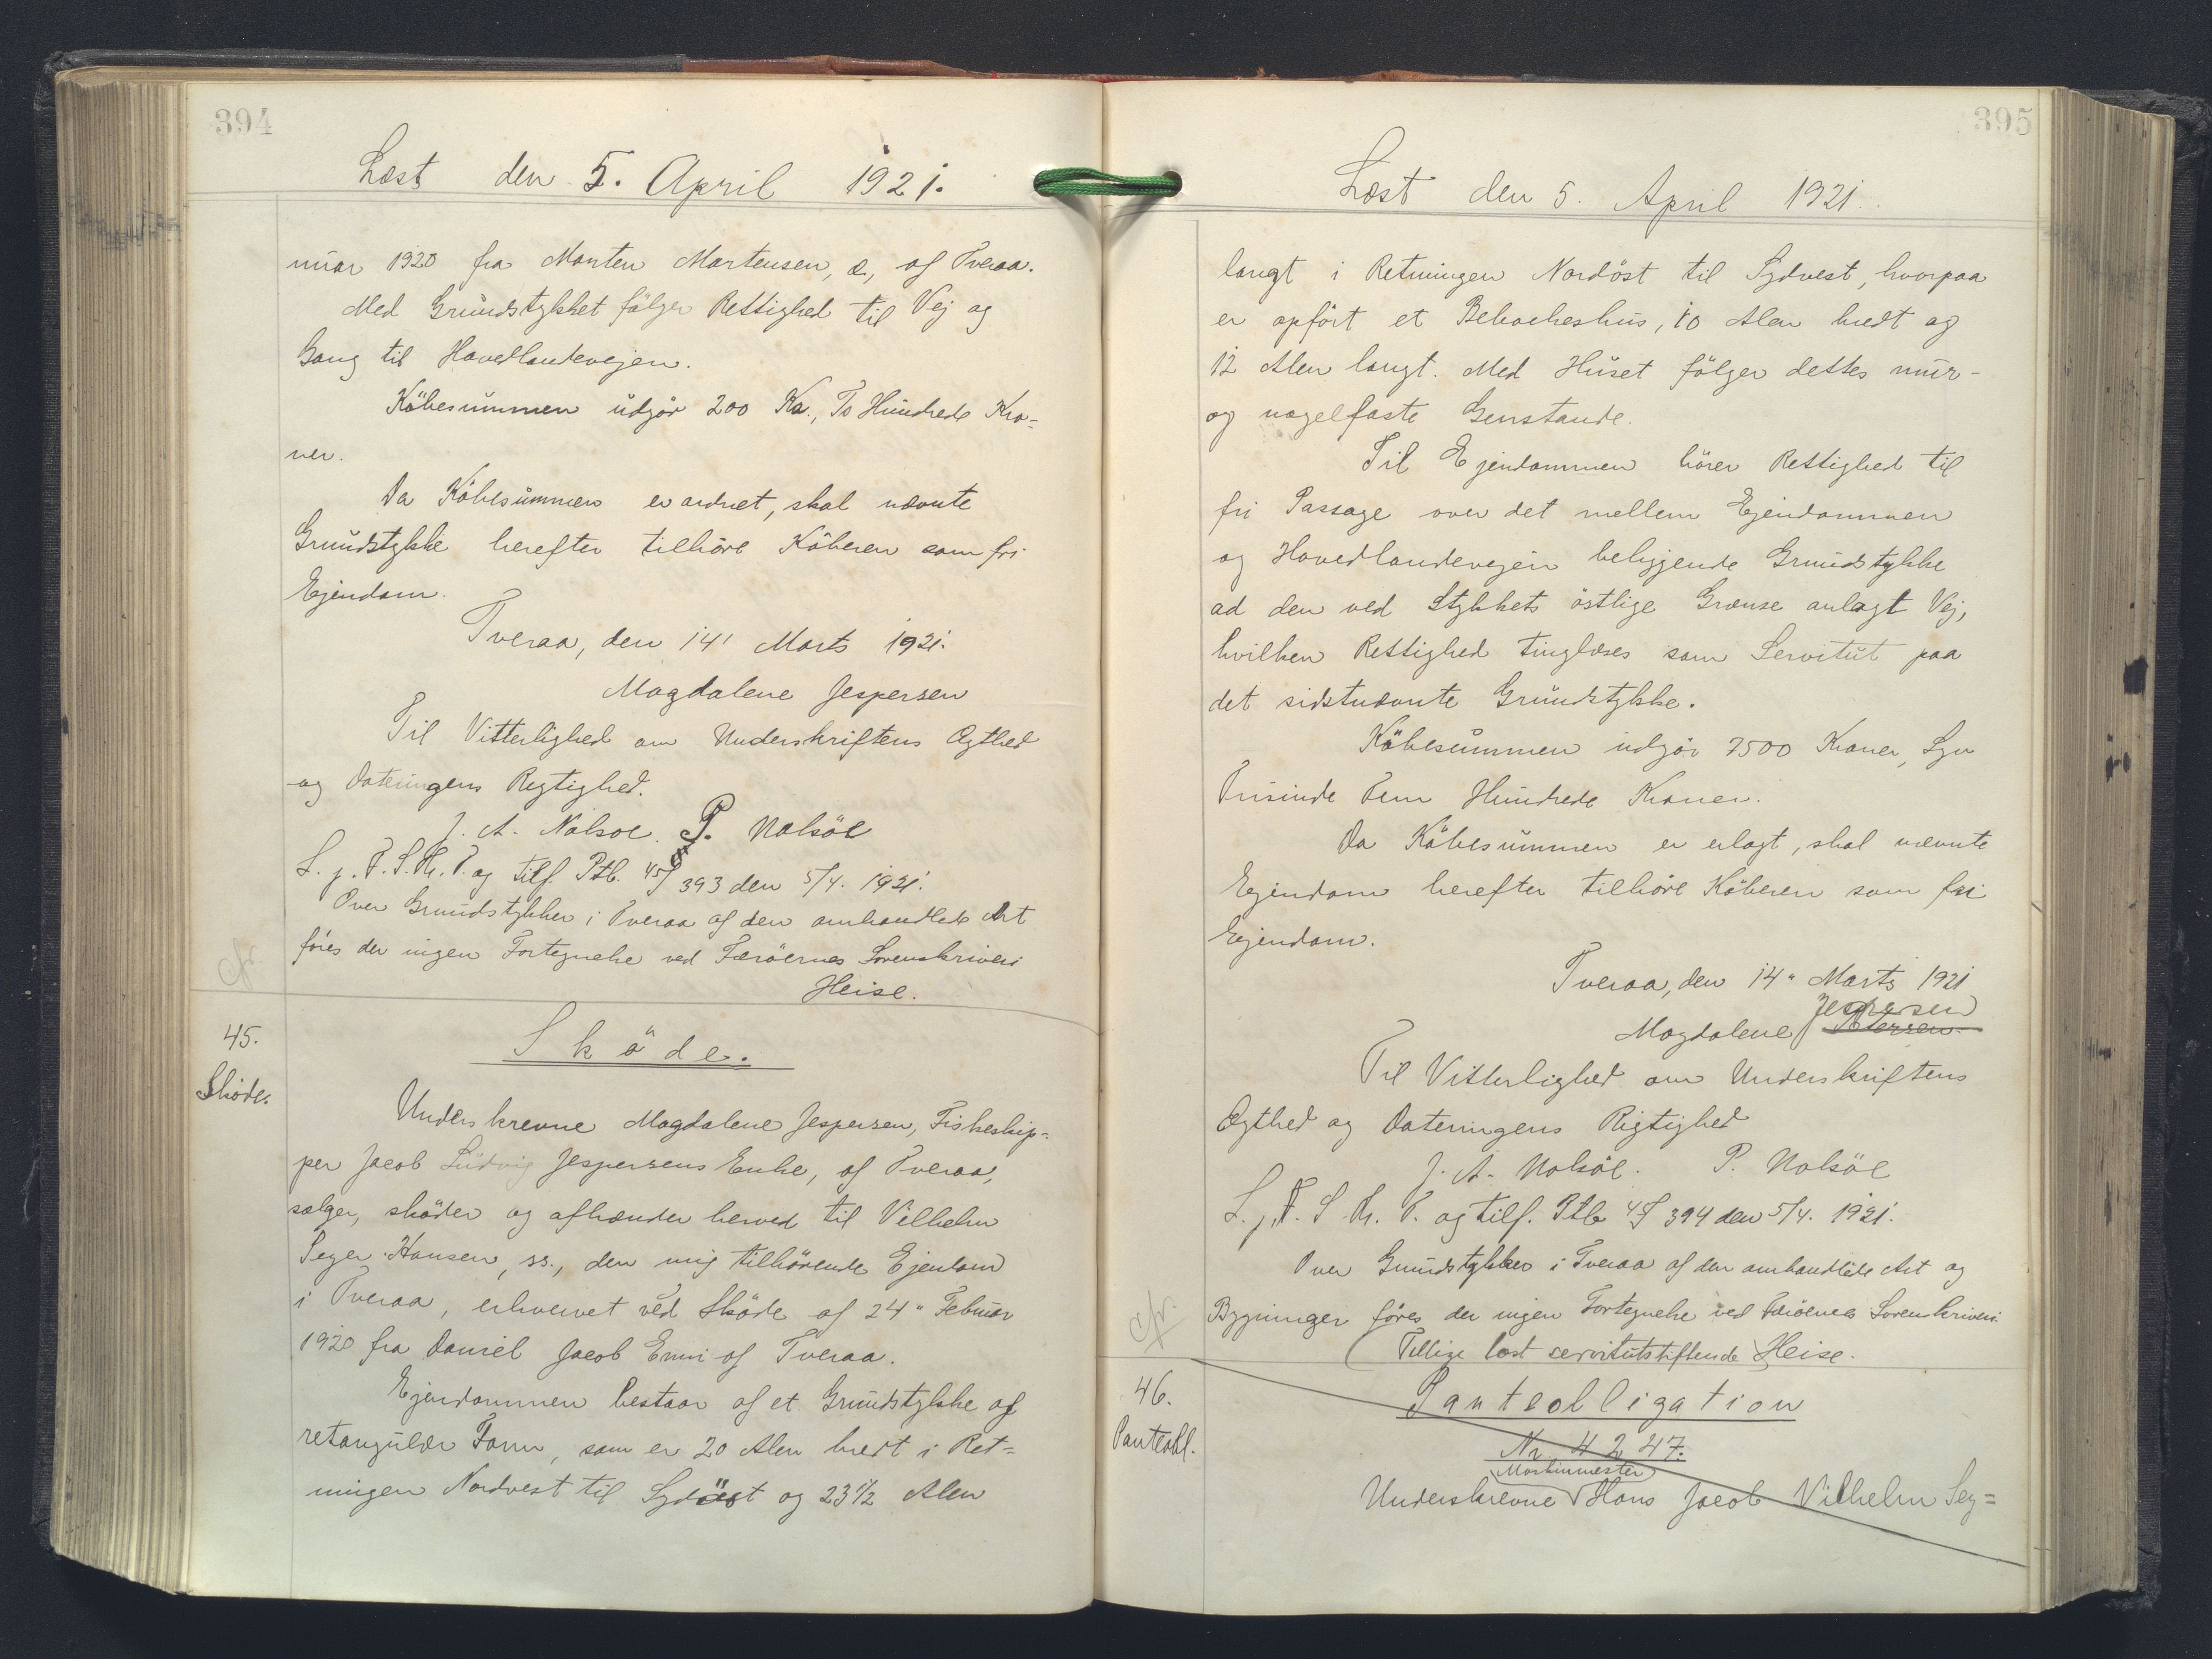 394
Læst den 5. April 1921.
nuar 1920 fra Morten Mortensen, æ, af Tveraa.
Med Grundstykket følger Rettighed til Vej og
Gang til Hovedlandevejen.
Købesummen udgør 200 Kr., To Hundrede Kro=
ner.
Da Købesummen er ordnet, skal nævnte
Grundstykke herefter tilhøre Køberen som fri
Ejendom.
Tveraa, den 14' Marts 1921.
Magdalene Jespersen
Til Vitterlighed om Underskriftens Ægthed
og Dateringens Rigtighed.
J. A. Nolsøe. P. Nolsöe
L. j. F. S. Kr. P. og tilf. Ptb. 45/393 den 5/4. 1921.
Over Grundstykker i Tveraa af den omhandlede Art
føres der ingen Fortegnelse ved Færøernes Sorenskriveri
Cfr.
Heise.
45.
Skøde.
Skøde.
Underskrevne Magdalene Jespersen, Fiskeskip=
per Jacob Ludvig Jespersens Enke, af Tveraa,
sælger, skøder og afhænder herved til Vilhelm
Seyer Hansen, ss., den mig tilhørende Ejendom
i Tveraa, erhvervet ved Skøde af 24" Februar
1920 fra Daniel Jacob Enni af Tveraa.
Ejendommen bestaar af et Grundstykke af
retangulær Form, som er 20 Alen bredt i Ret=
ningen Nordvest til Sydøst og 23 1/2 Alen
395
Læst den 5. April 1921.
langt i Retningen Nordöst til Sydvest, hvorpaa
er opført et Beboelseshus, 10 Alen bredt og
12 Alen langt. Med Huset følger dettes mur-
og nagelfaste Genstande.
Til Ejendommen hører Rettighed til
fri Passage over det mellem Ejendommen
og Hovedlandevejen beliggende Grundstykke
ad den ved Stykkets östlige Grænse anlagt Vej,
hvilken Rettighed tinglæses som Servitut paa
det sidstnævnte Grundstykke.
Købesummen udgör 7500 Kroner, Syv
Tusinde Fem Hundrede Kroner.
Da Købesummen er erlagt, skal nævnte
Ejendom herefter tilhøre Køberen som fri
Ejendom.
Tveraa, den 14" Marts 1921
Jespersen
Magdalene Petersen
Til Vitterlighed om Underskriftens
Ægthed og Dateringens Rigtighed
J. A. Nolsöe. P. Nolsöe
L. j. F. S Kr. P. og tilf. Ptb 45/394 den 5/4. 1921.
Over Grundstykker i Tveraa af den omhandlede Art og
Cfr.
Bygninger føres der ingen Fortegnelse ved Færøernes Sorenskriveri.
Tillige læst servitutstiftende Heise.
46.
Panteobl.
Panteobligation
Nr 4247.
Maskinmester
Underskrevne Hans Jacob Vilhelm Sey=